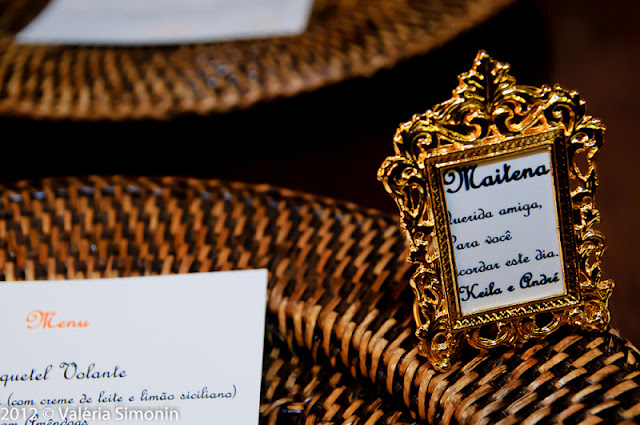 Maitena
Querida amiga,
Para você
cordar este dia.
Keila e André
Menu
quetel Volante
(com creme de leite e limão siciliano)
om Amêndoas
2012 © Valéria Simonin